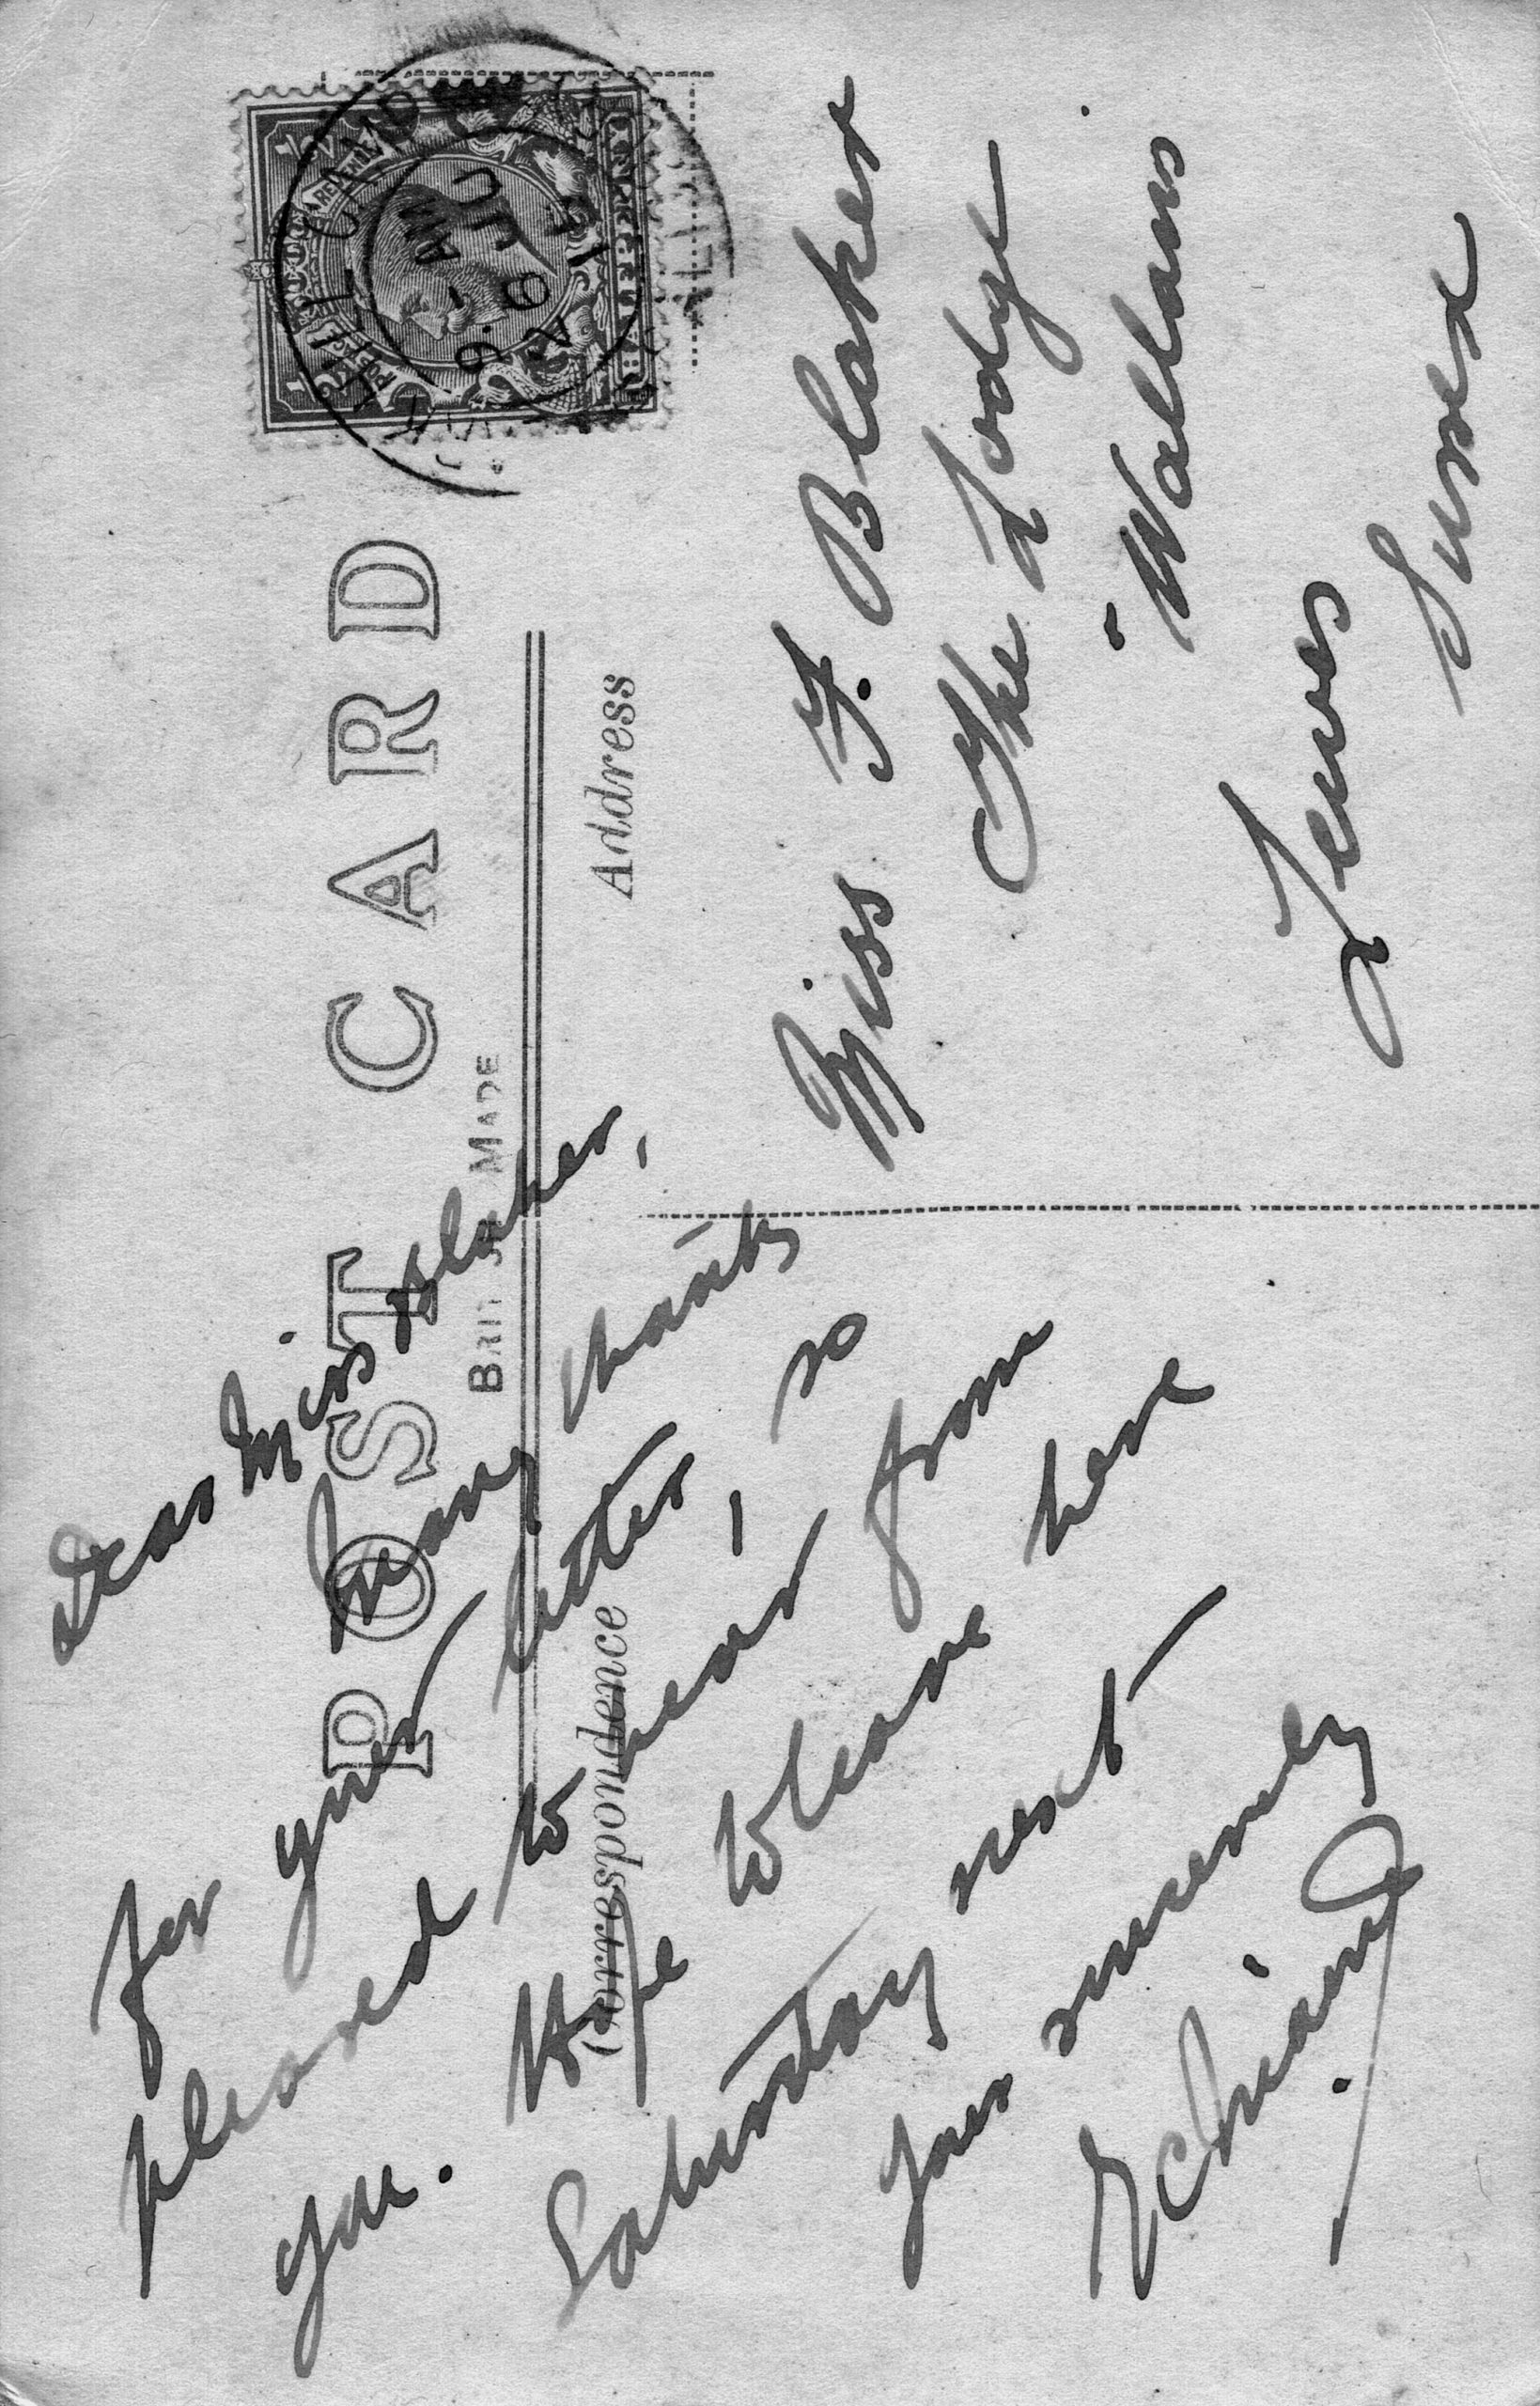 POST CARD
BRITISH MADE
Correspondence
Address
Dear Miss Blaker,
Many thanks
for your letter, so
pleased to hear from
you. Hope to leave here
Saturday next
Yours sincerely
Miss F. Blaker
The Lodge
"Wallans
Lewes
Sussex
POSTAGE
REVENUE
1/2
1/2
HILL CAMP
9 - AM
29 JU